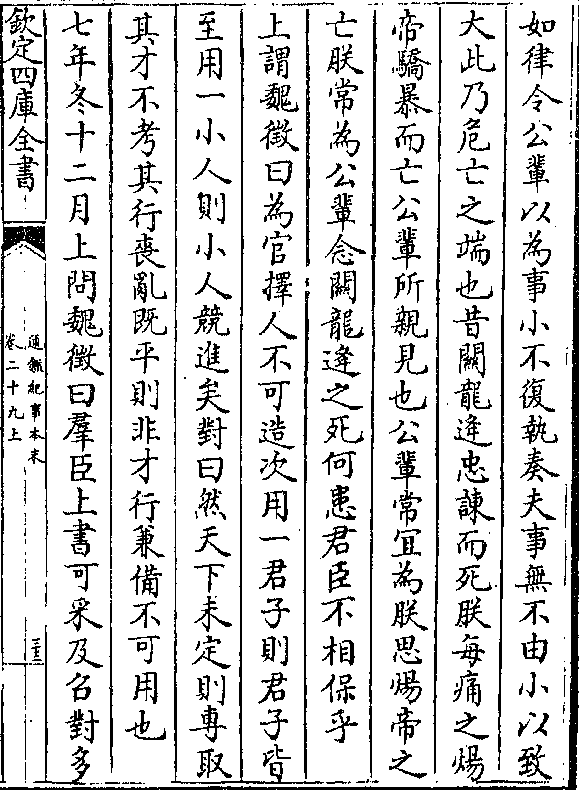 如律令公輩以為事小不復執奏夫事無不由小以致
大此乃危亡之端也昔關龍逄忠諫而死朕每痛之煬
帝驕暴而亡公輩所親見也公輩常宜為朕思煬帝之
亡朕常為公輩念關龍逄之死何患君臣不相保乎
上謂魏徵曰為官擇人不可造次用一君子則君子皆
至用一小人則小人競進矣對曰然天下未定則專取
其才不考其行喪亂既平則非才行兼備不可用也
七年冬十二月上問魏徵曰羣臣上書可采及召對多
欽定四庫全書
通鑑紀事本末
卷二十九上
三十三